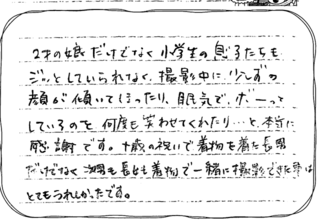 2才の娘だけでなく小学生の息子たちも
ジッとしていられなく、撮影中に少しずつ
顔が傾いてしまったり、眠気で、ボーっと
しているのを何度も笑わせてくれたり…と本当に
感謝です。十歳の祝いで着物を着た長男
だけでなく次男も長女も着物で一緒に撮影できた事は
とてもうれしかったです。